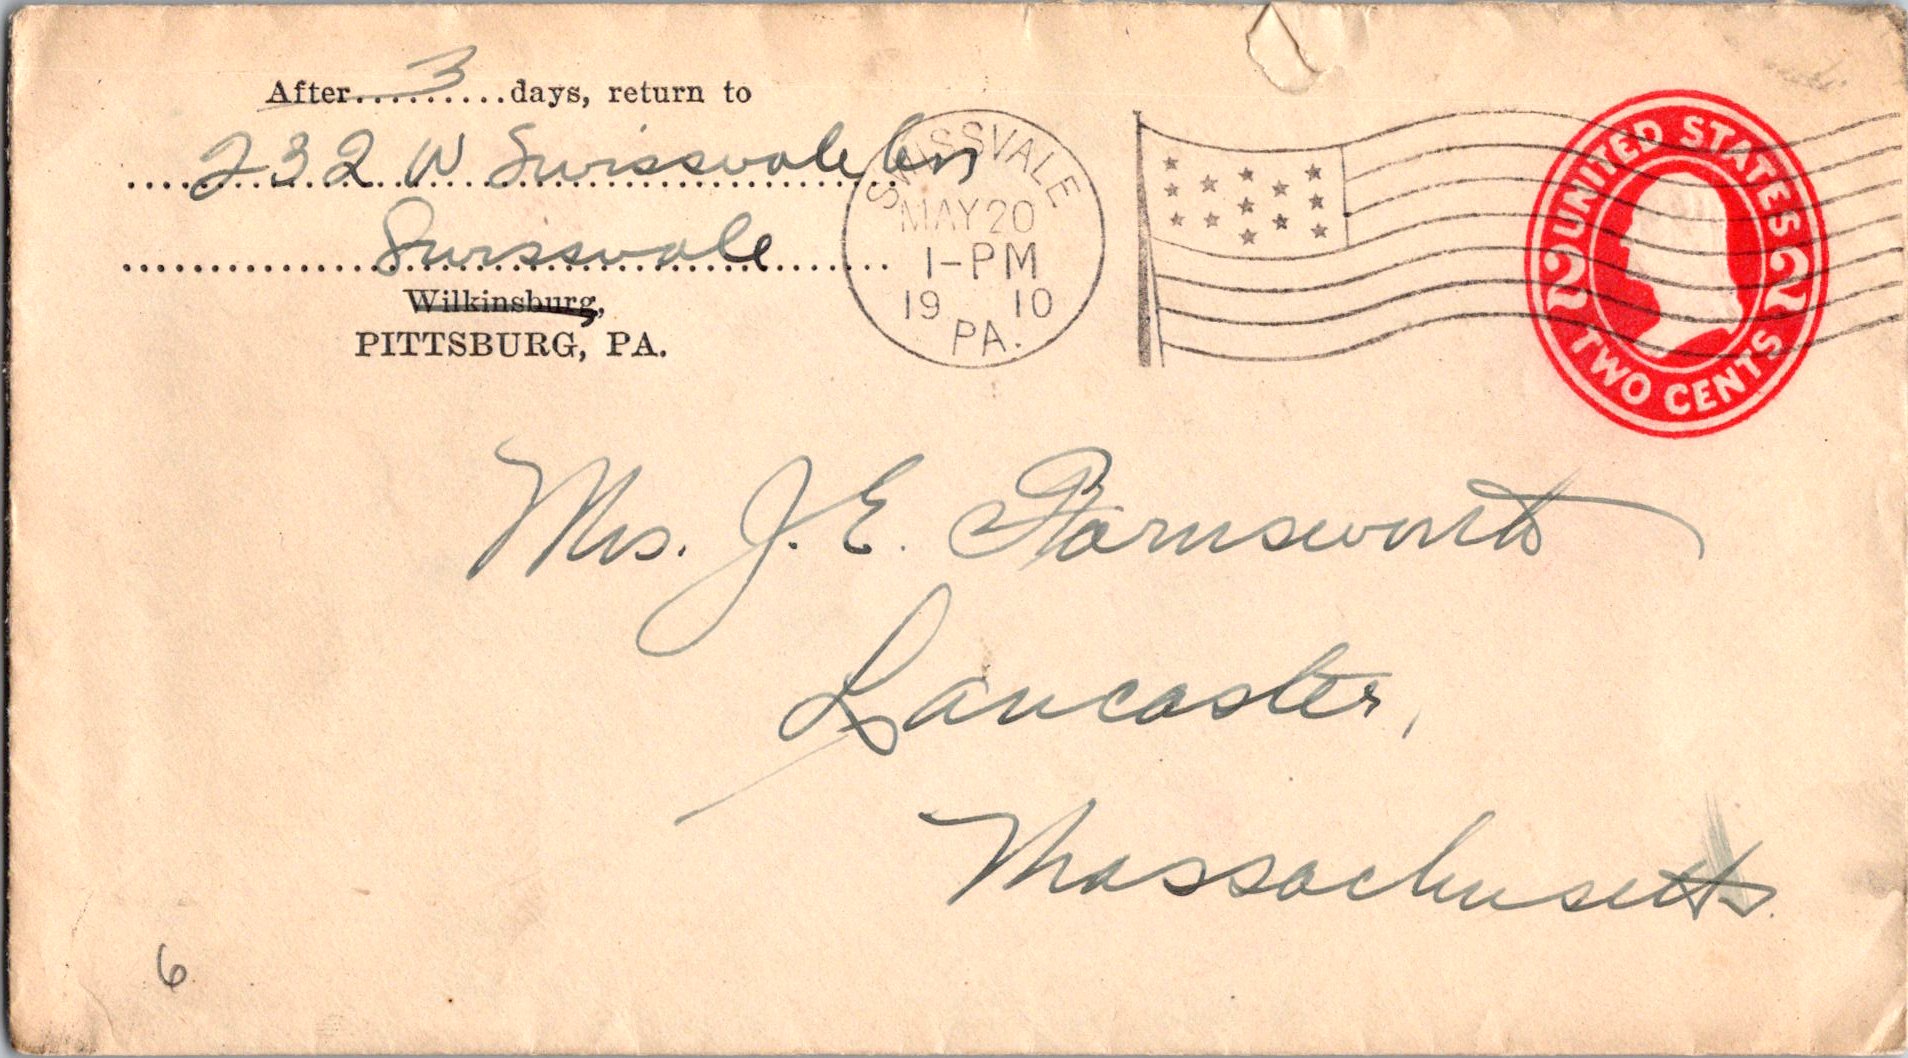 After 3 days, return to
232 W Swissvale Av
Swissvale
Wilkinsburg,
PITTSBURG, PA.
SWISSVALE
MAY 20
1-PM
19 10
PA.
UNITED STATES
2 2
TWO CENTS
Mrs. J. E. Farnsworth
Lancaster,
Massachusetts.
6